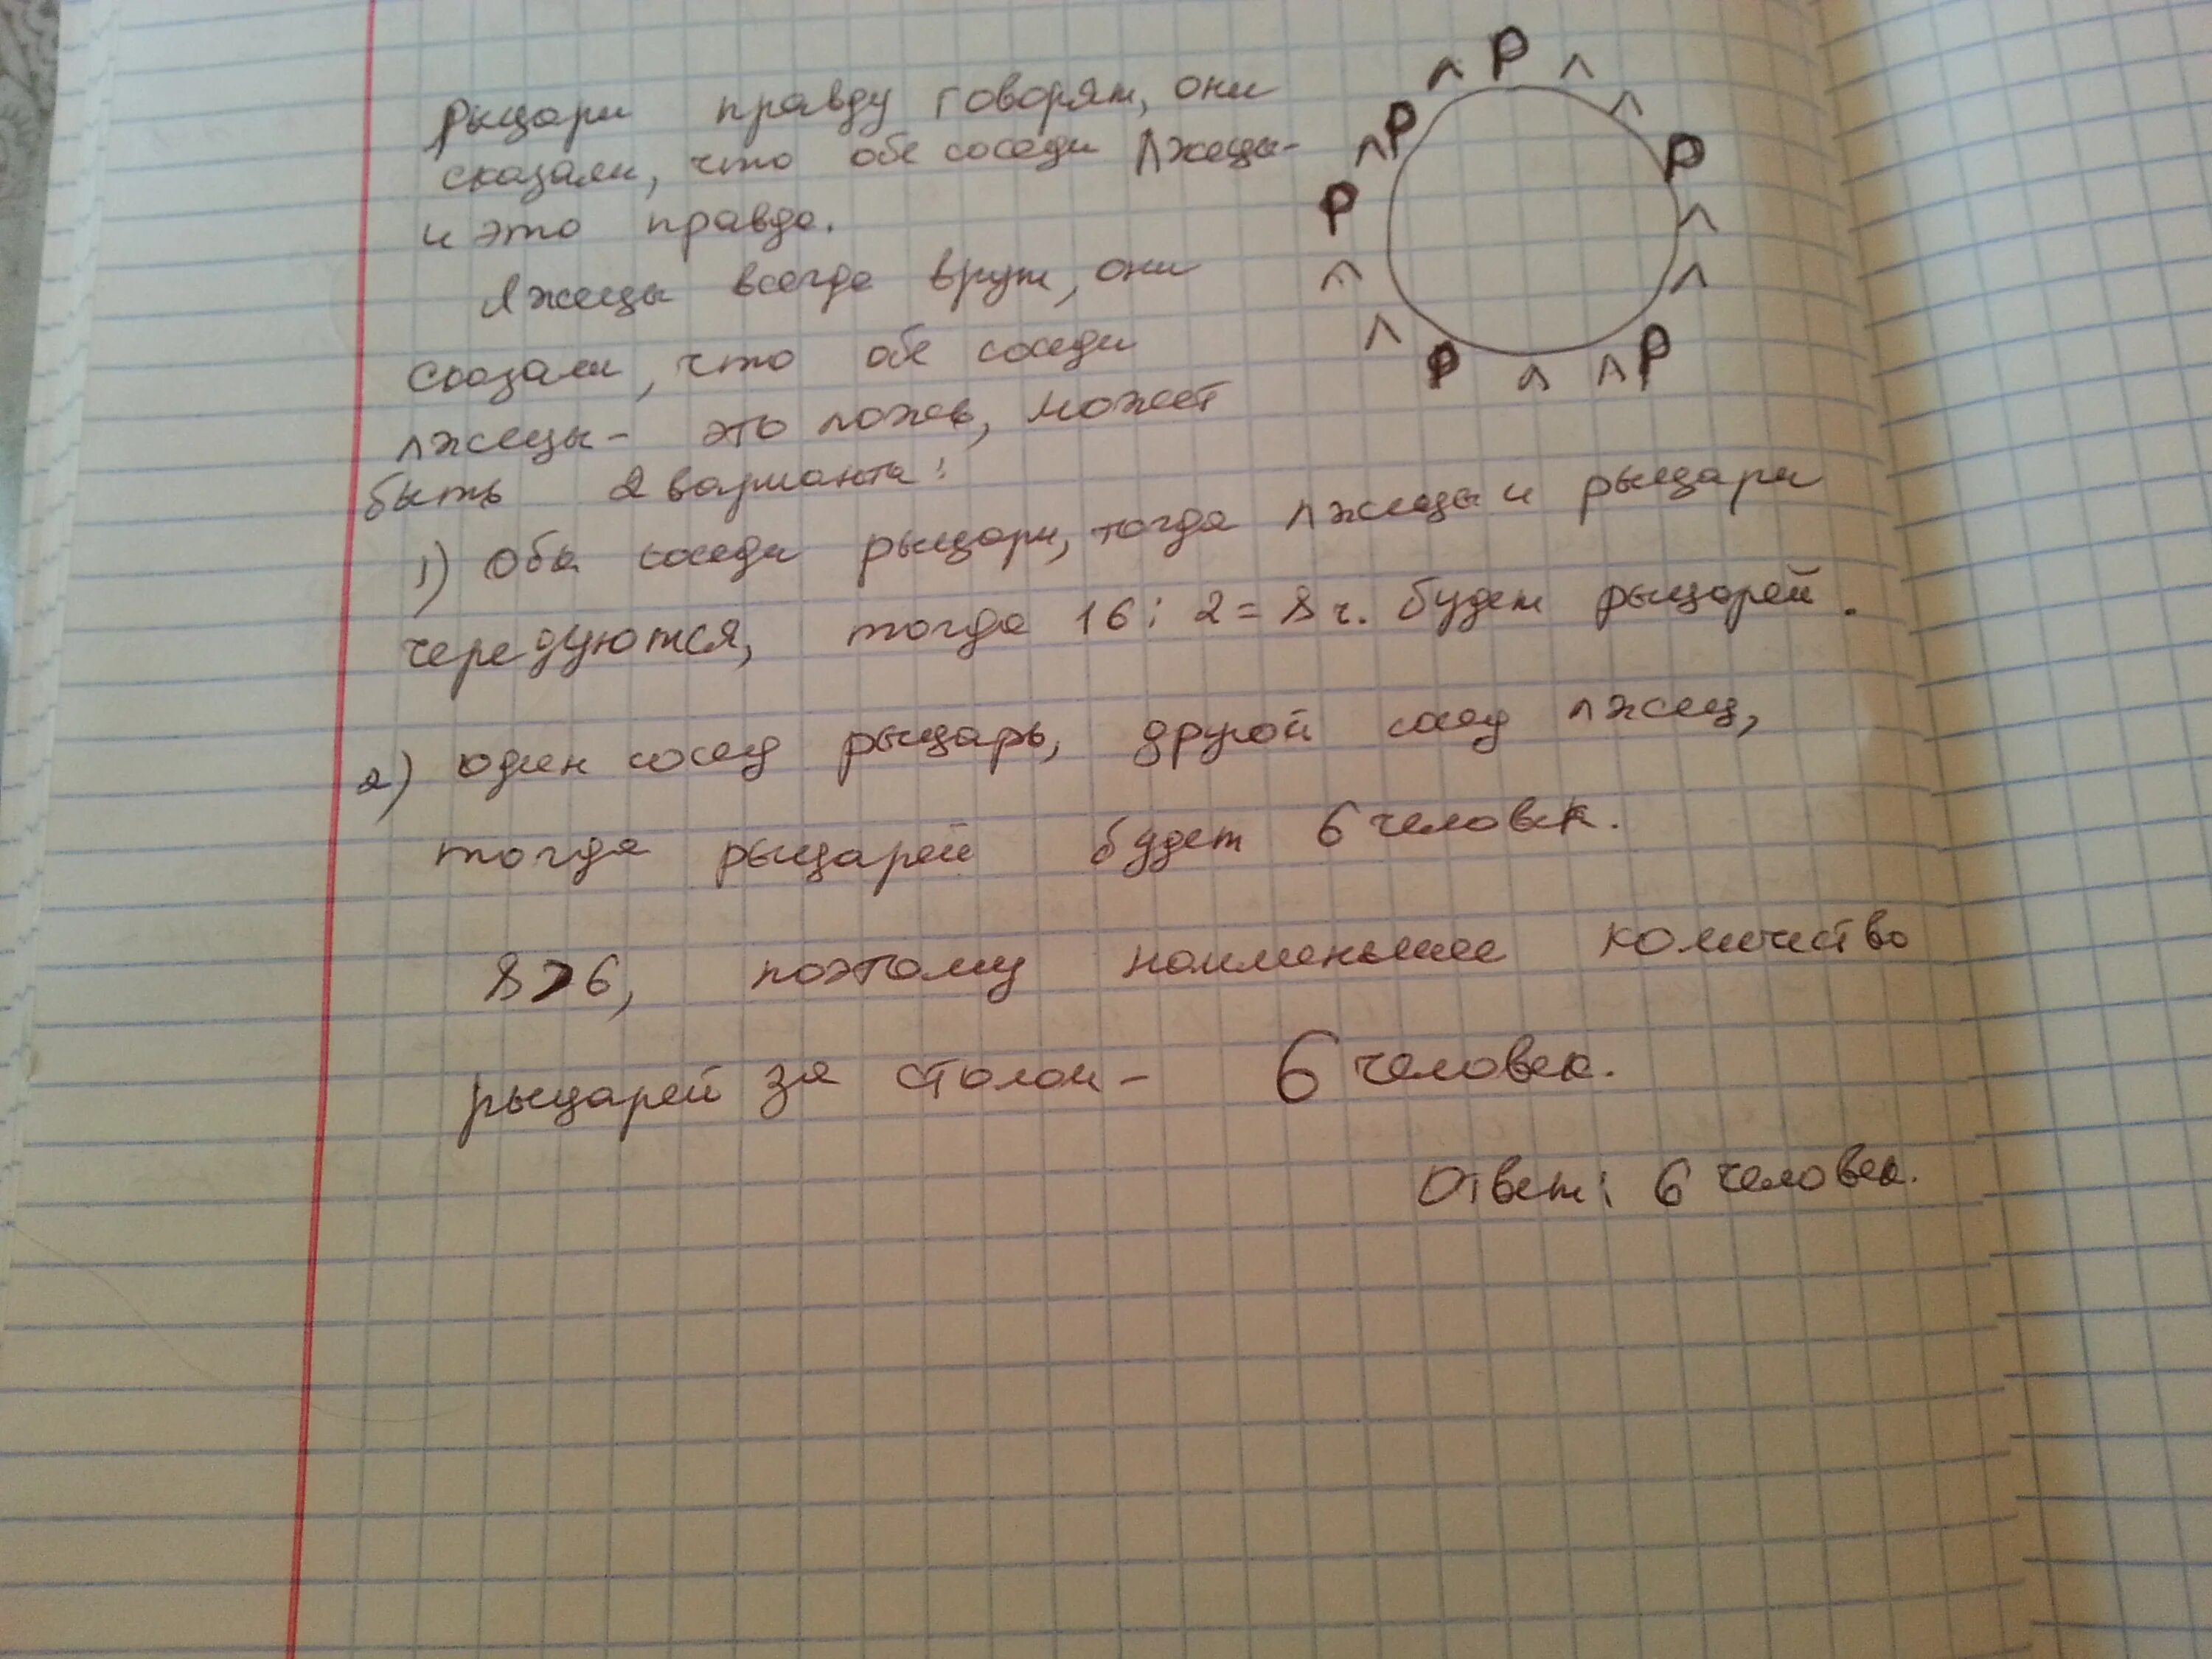 Рыцари правду говорят, они
сказали, что обе соседи лжецы-
и это правда.
Лжецы всегда врут, они
сказали, что обе соседи
лжецы- это ложь, может
быть 2 варианта:
1) Оба соседи рыцари, тогда лжецы и рыцари
чередуются, тогда 16:2=8 ч. будет рыцарей.
2) один сосед рыцарь, другой сосед лжец,
тогда рыцарей будет 6 человек.
8>6, поэтому наименьшее количество
рыцарей за столом- 6 человек.
Ответ: 6 человек.
Л Р Л
Р Л
Л Р
Р Л
Л Л
Л Р
Р Л Л